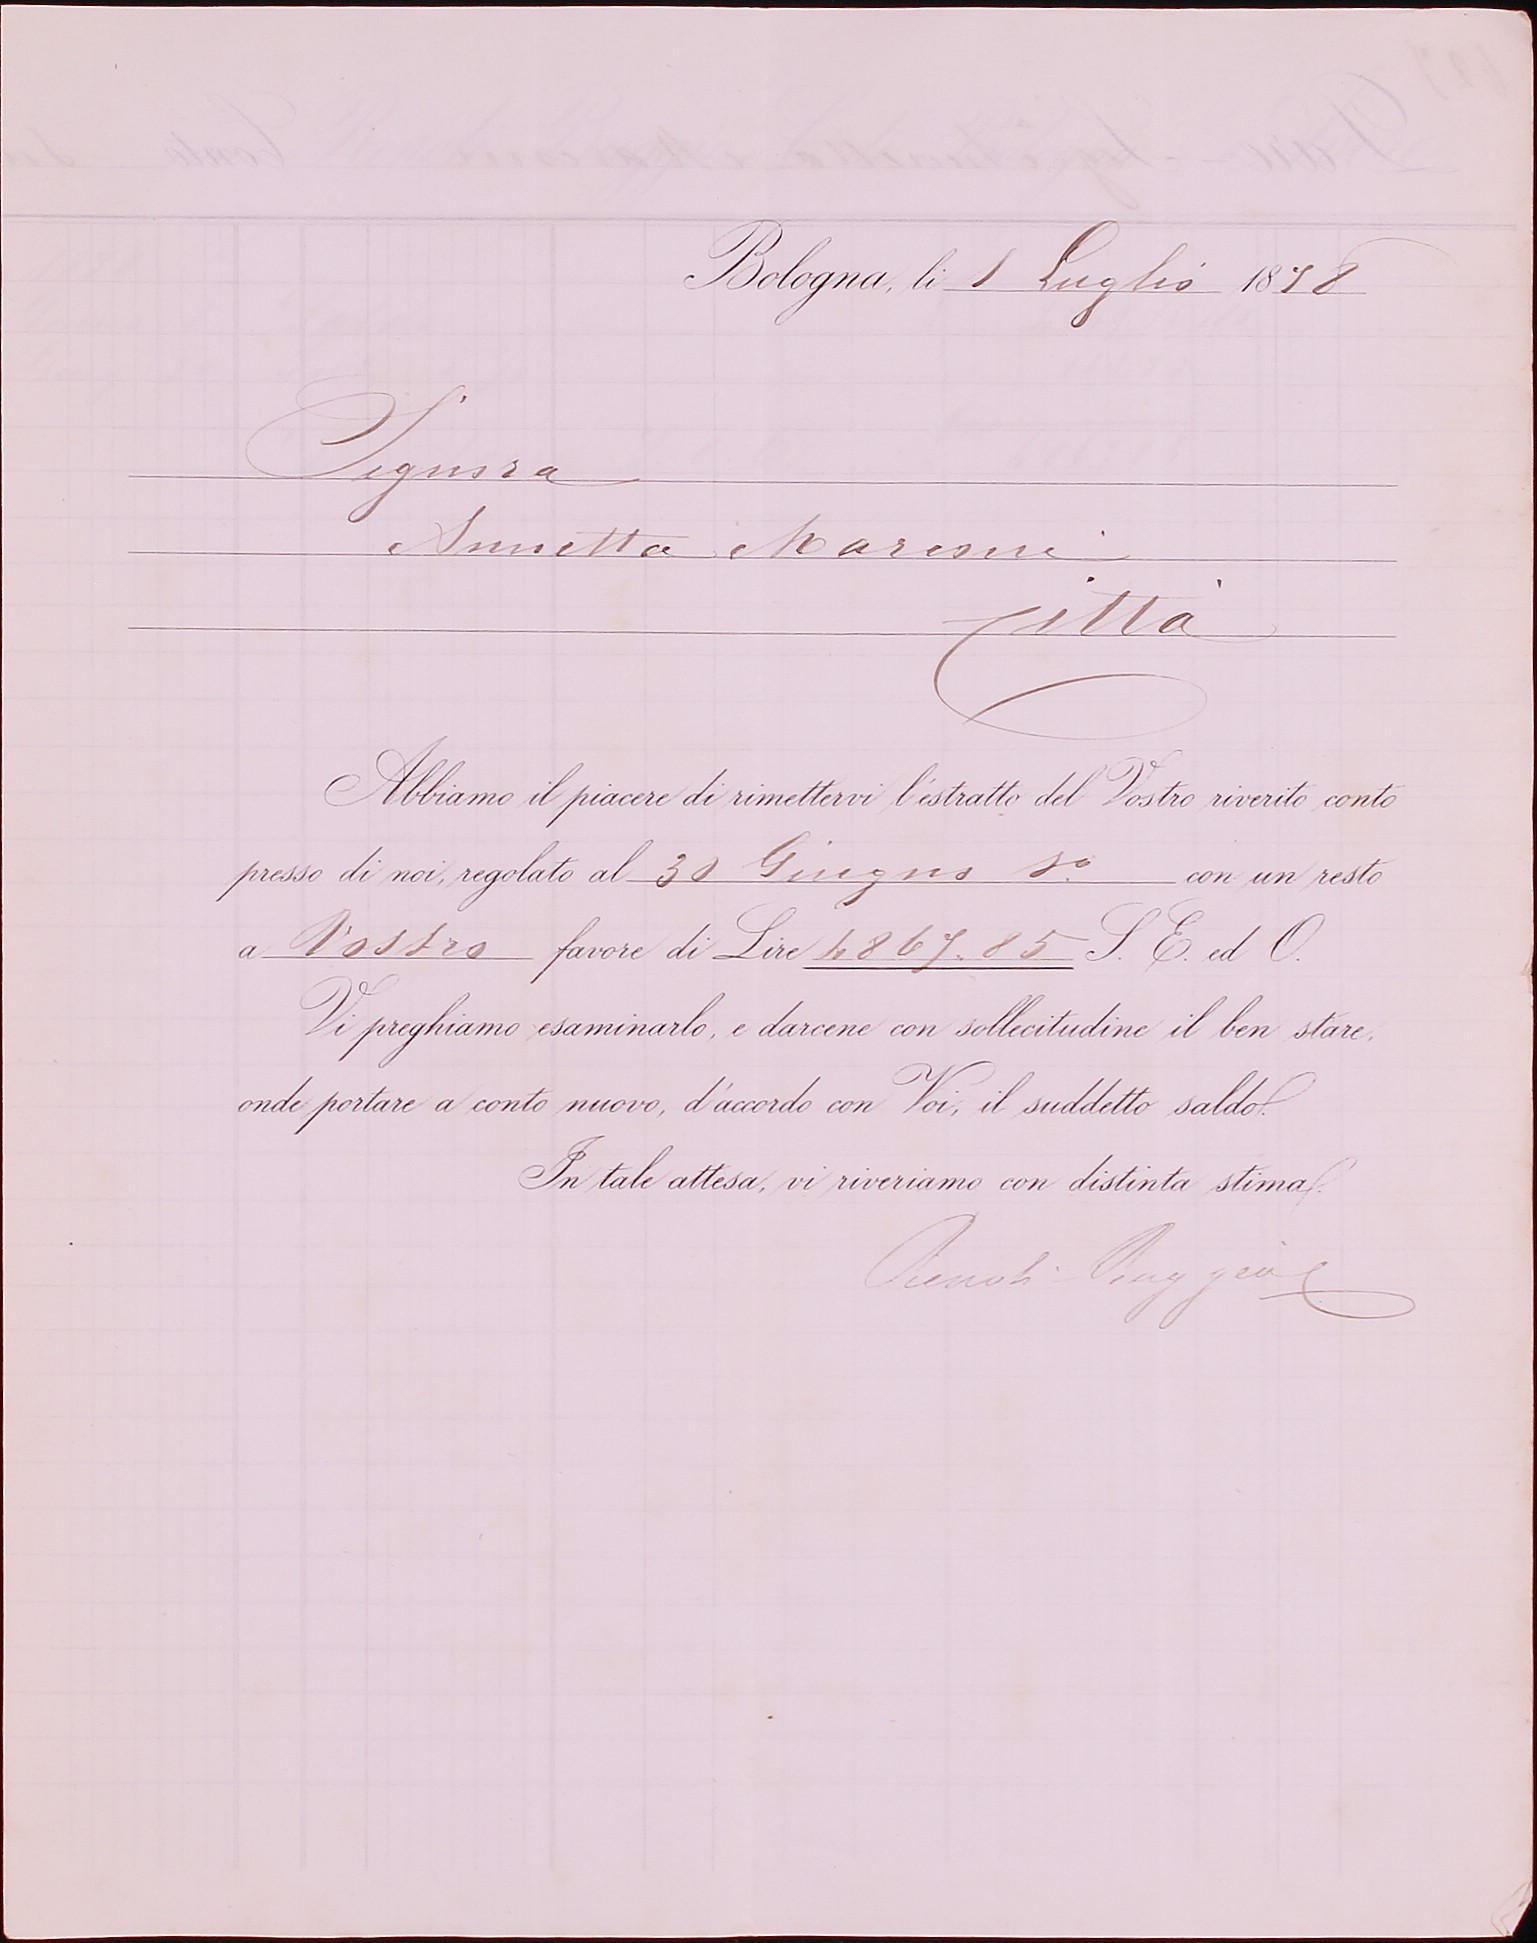 Bologna, li 1 Luglio 1878
Signora
Annetta Marconi
Città
Abbiamo il piacere di rimettervi l'estratto del Vostro riverito conto
presso di noi, regolato al 30 Giugno sº con un resto
a Vostro favore di Lire 4867.85 S. E. ed O.
Vi preghiamo esaminarlo, e darcene con sollecitudine il ben stare,
onde portare a conto nuovo, d'accordo con Voi, il suddetto saldo.
In tale attesa, vi riveriamo con distinta stima.
Renoli Ruggero